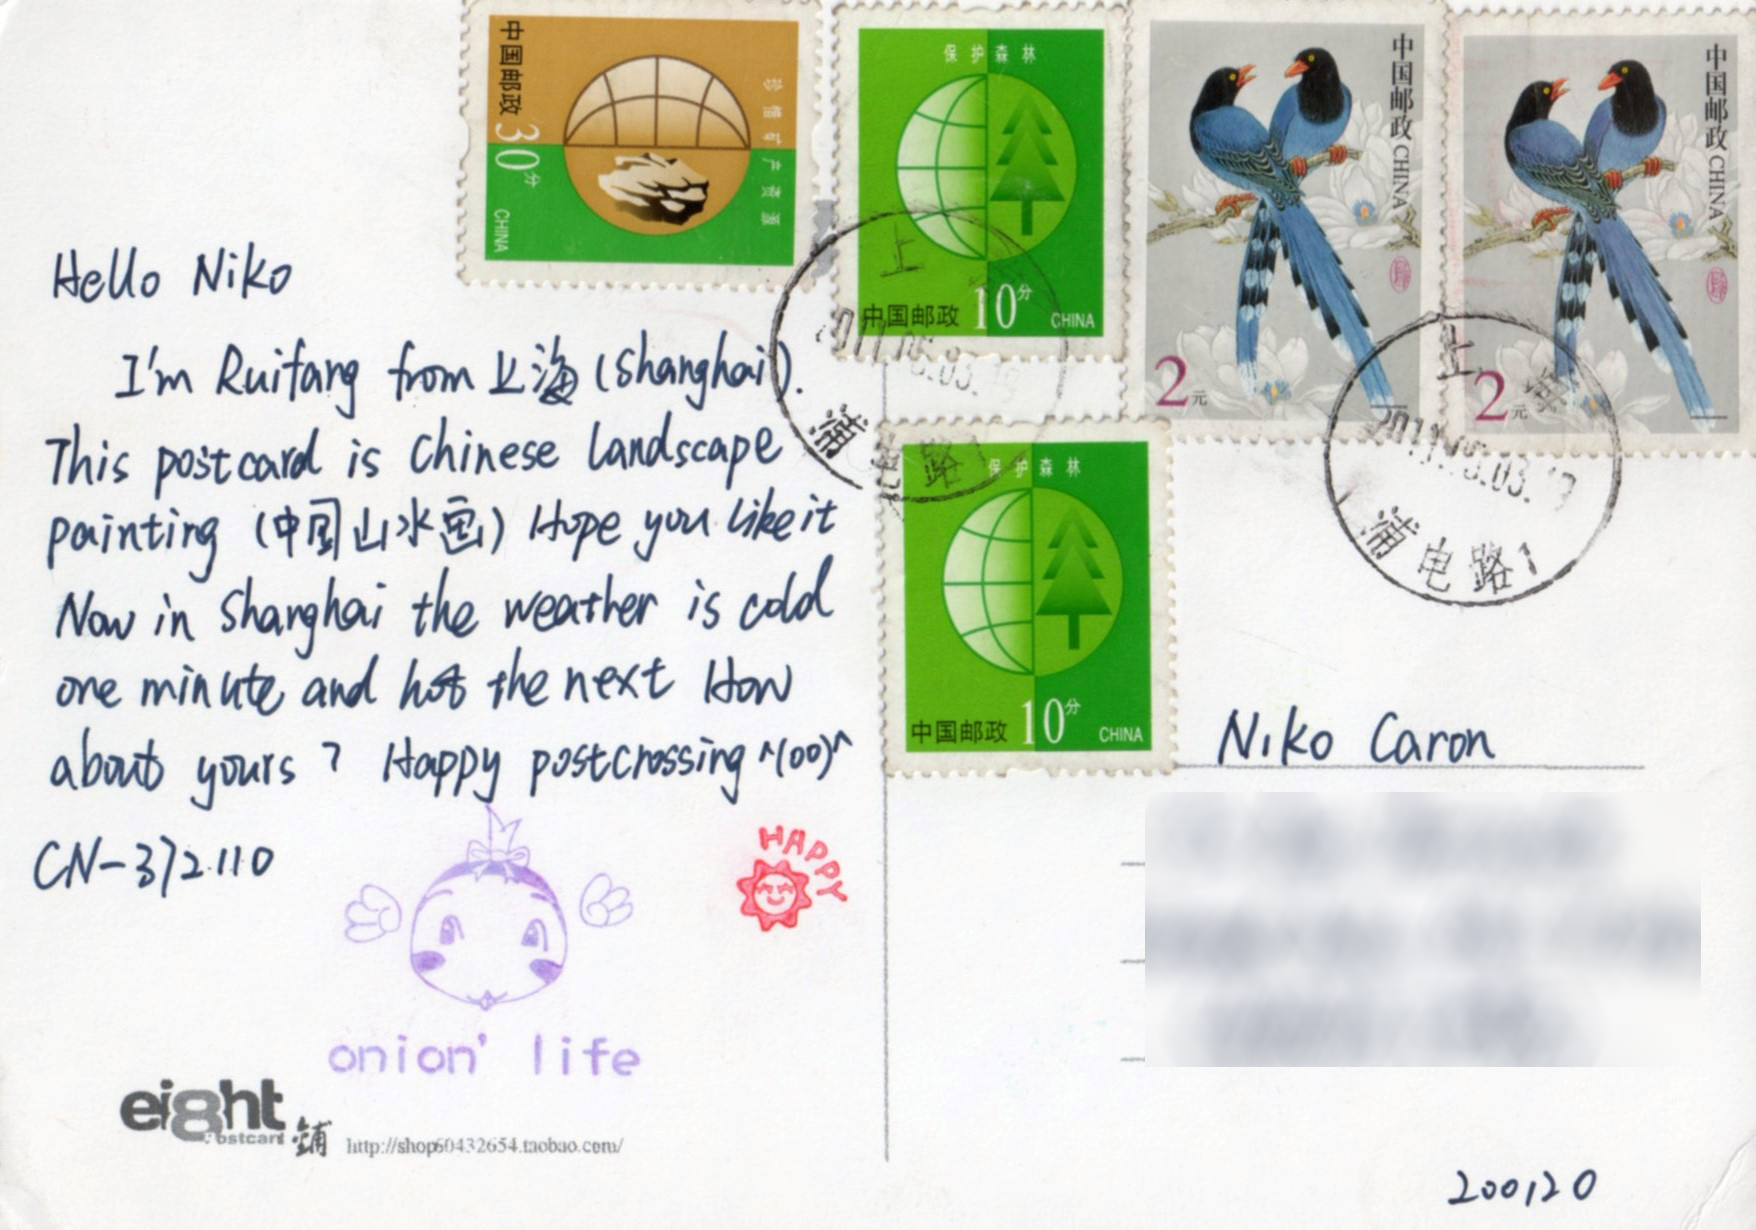 中国邮政 30分 CHINA
珍惜矿产资源
保护森林
中国邮政 10分 CHINA
中国邮政 CHINA
2元
中国邮政 CHINA
2元
上
2011.05.03.19
浦电路1
保护森林
中国邮政 10分 CHINA
上海
2011.05.03.19
浦电路1
Hello Niko
I'm Ruifang from 上海 (Shanghai).
This postcard is Chinese landscape
painting (中国山水画) Hope you like it
Now in Shanghai the weather is cold
one minute and hot the next How
about yours? Happy postcrossing ^(00)^
CN-372110
HAPPY
onion' life
eight
Postcard 铺 http://shop60432654.taobao.com/
Niko Caron
200120